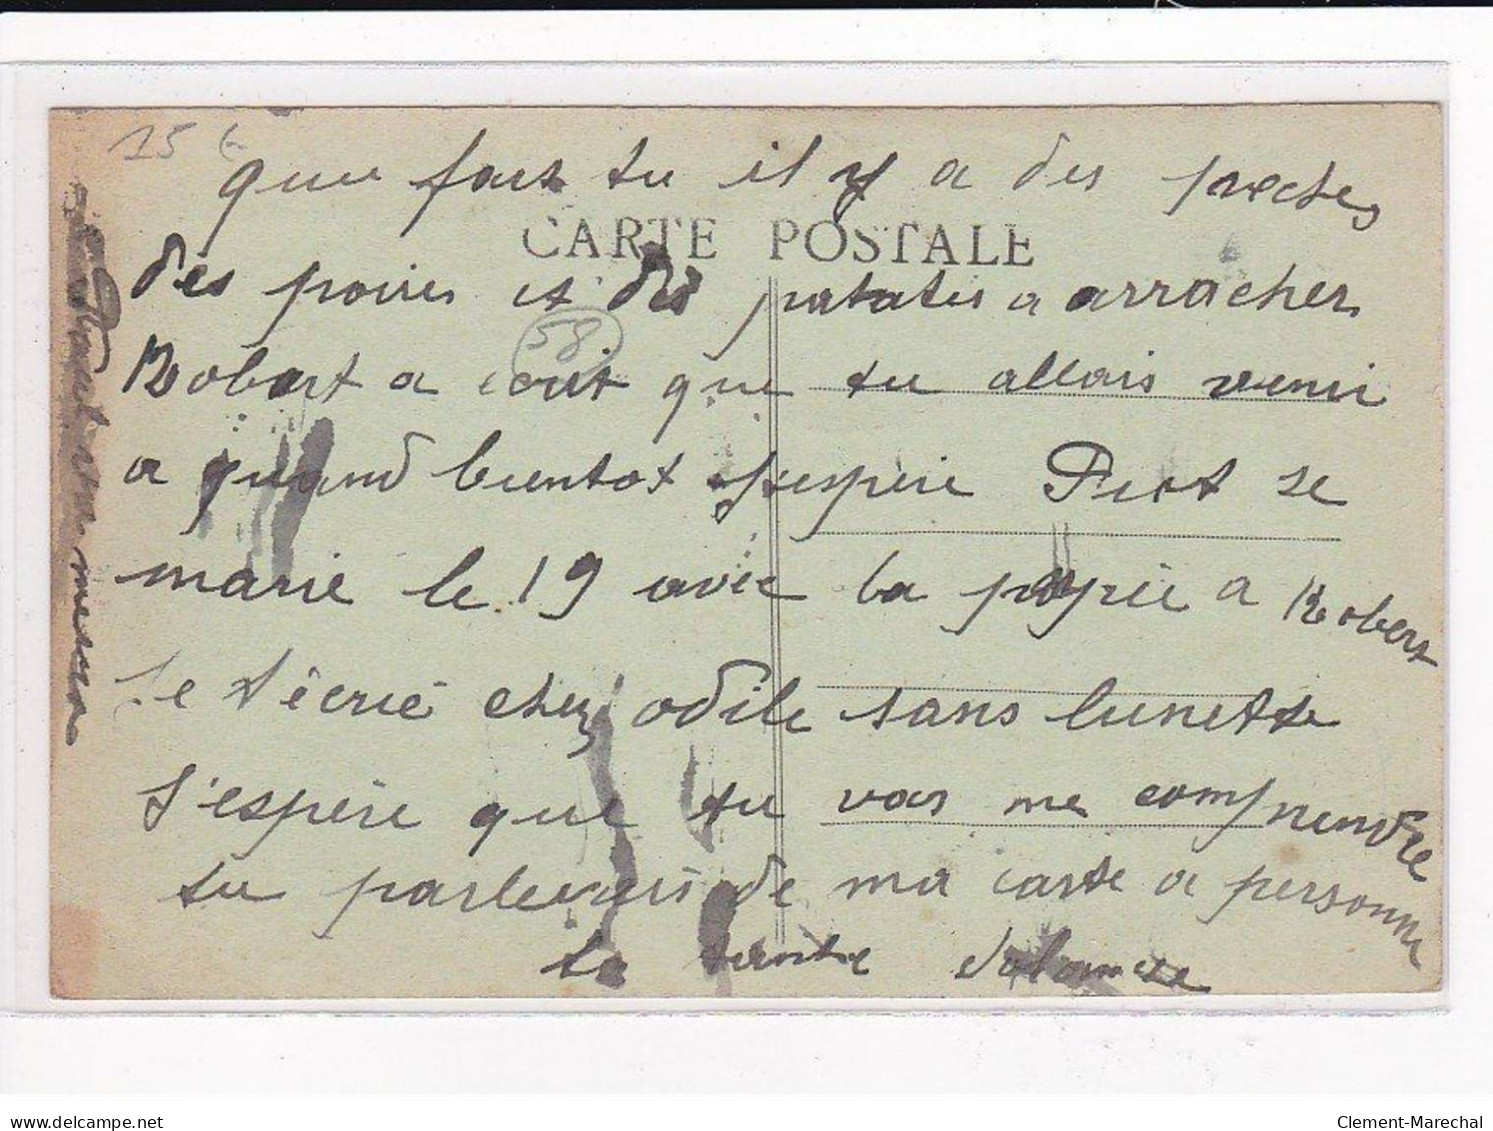 15 €
que fais tu il y a des peches
CARTE POSTALE
des poires et des patates a arracher
58
Robert a écrit que tu allais venir
a quand bientot j'espère Piot se
marie le 19 avec la a Robert
te l'écrié chez odile sans lunette
J'espère que tu vas me comprendre
tu parleras de ma carte a personne
ta tante
Clement-Marechal
www.delcampe.net